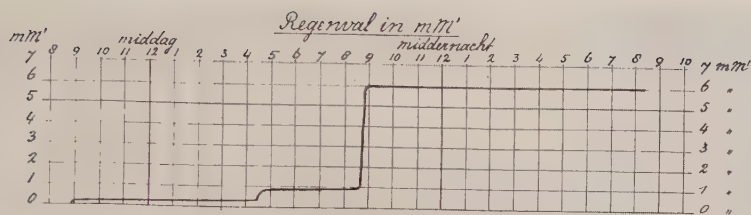 Regenval in mM'
mM' middag middernacht
7 8 9 10 11 12 1 2 3 4 5 6 7 8 9 10 11 12 1 2 3 4 5 6 7 8 9 10 7 mM'
6 6 "
5 5 "
4 4 "
3 3 "
2 2 "
1 1 "
0 0 "